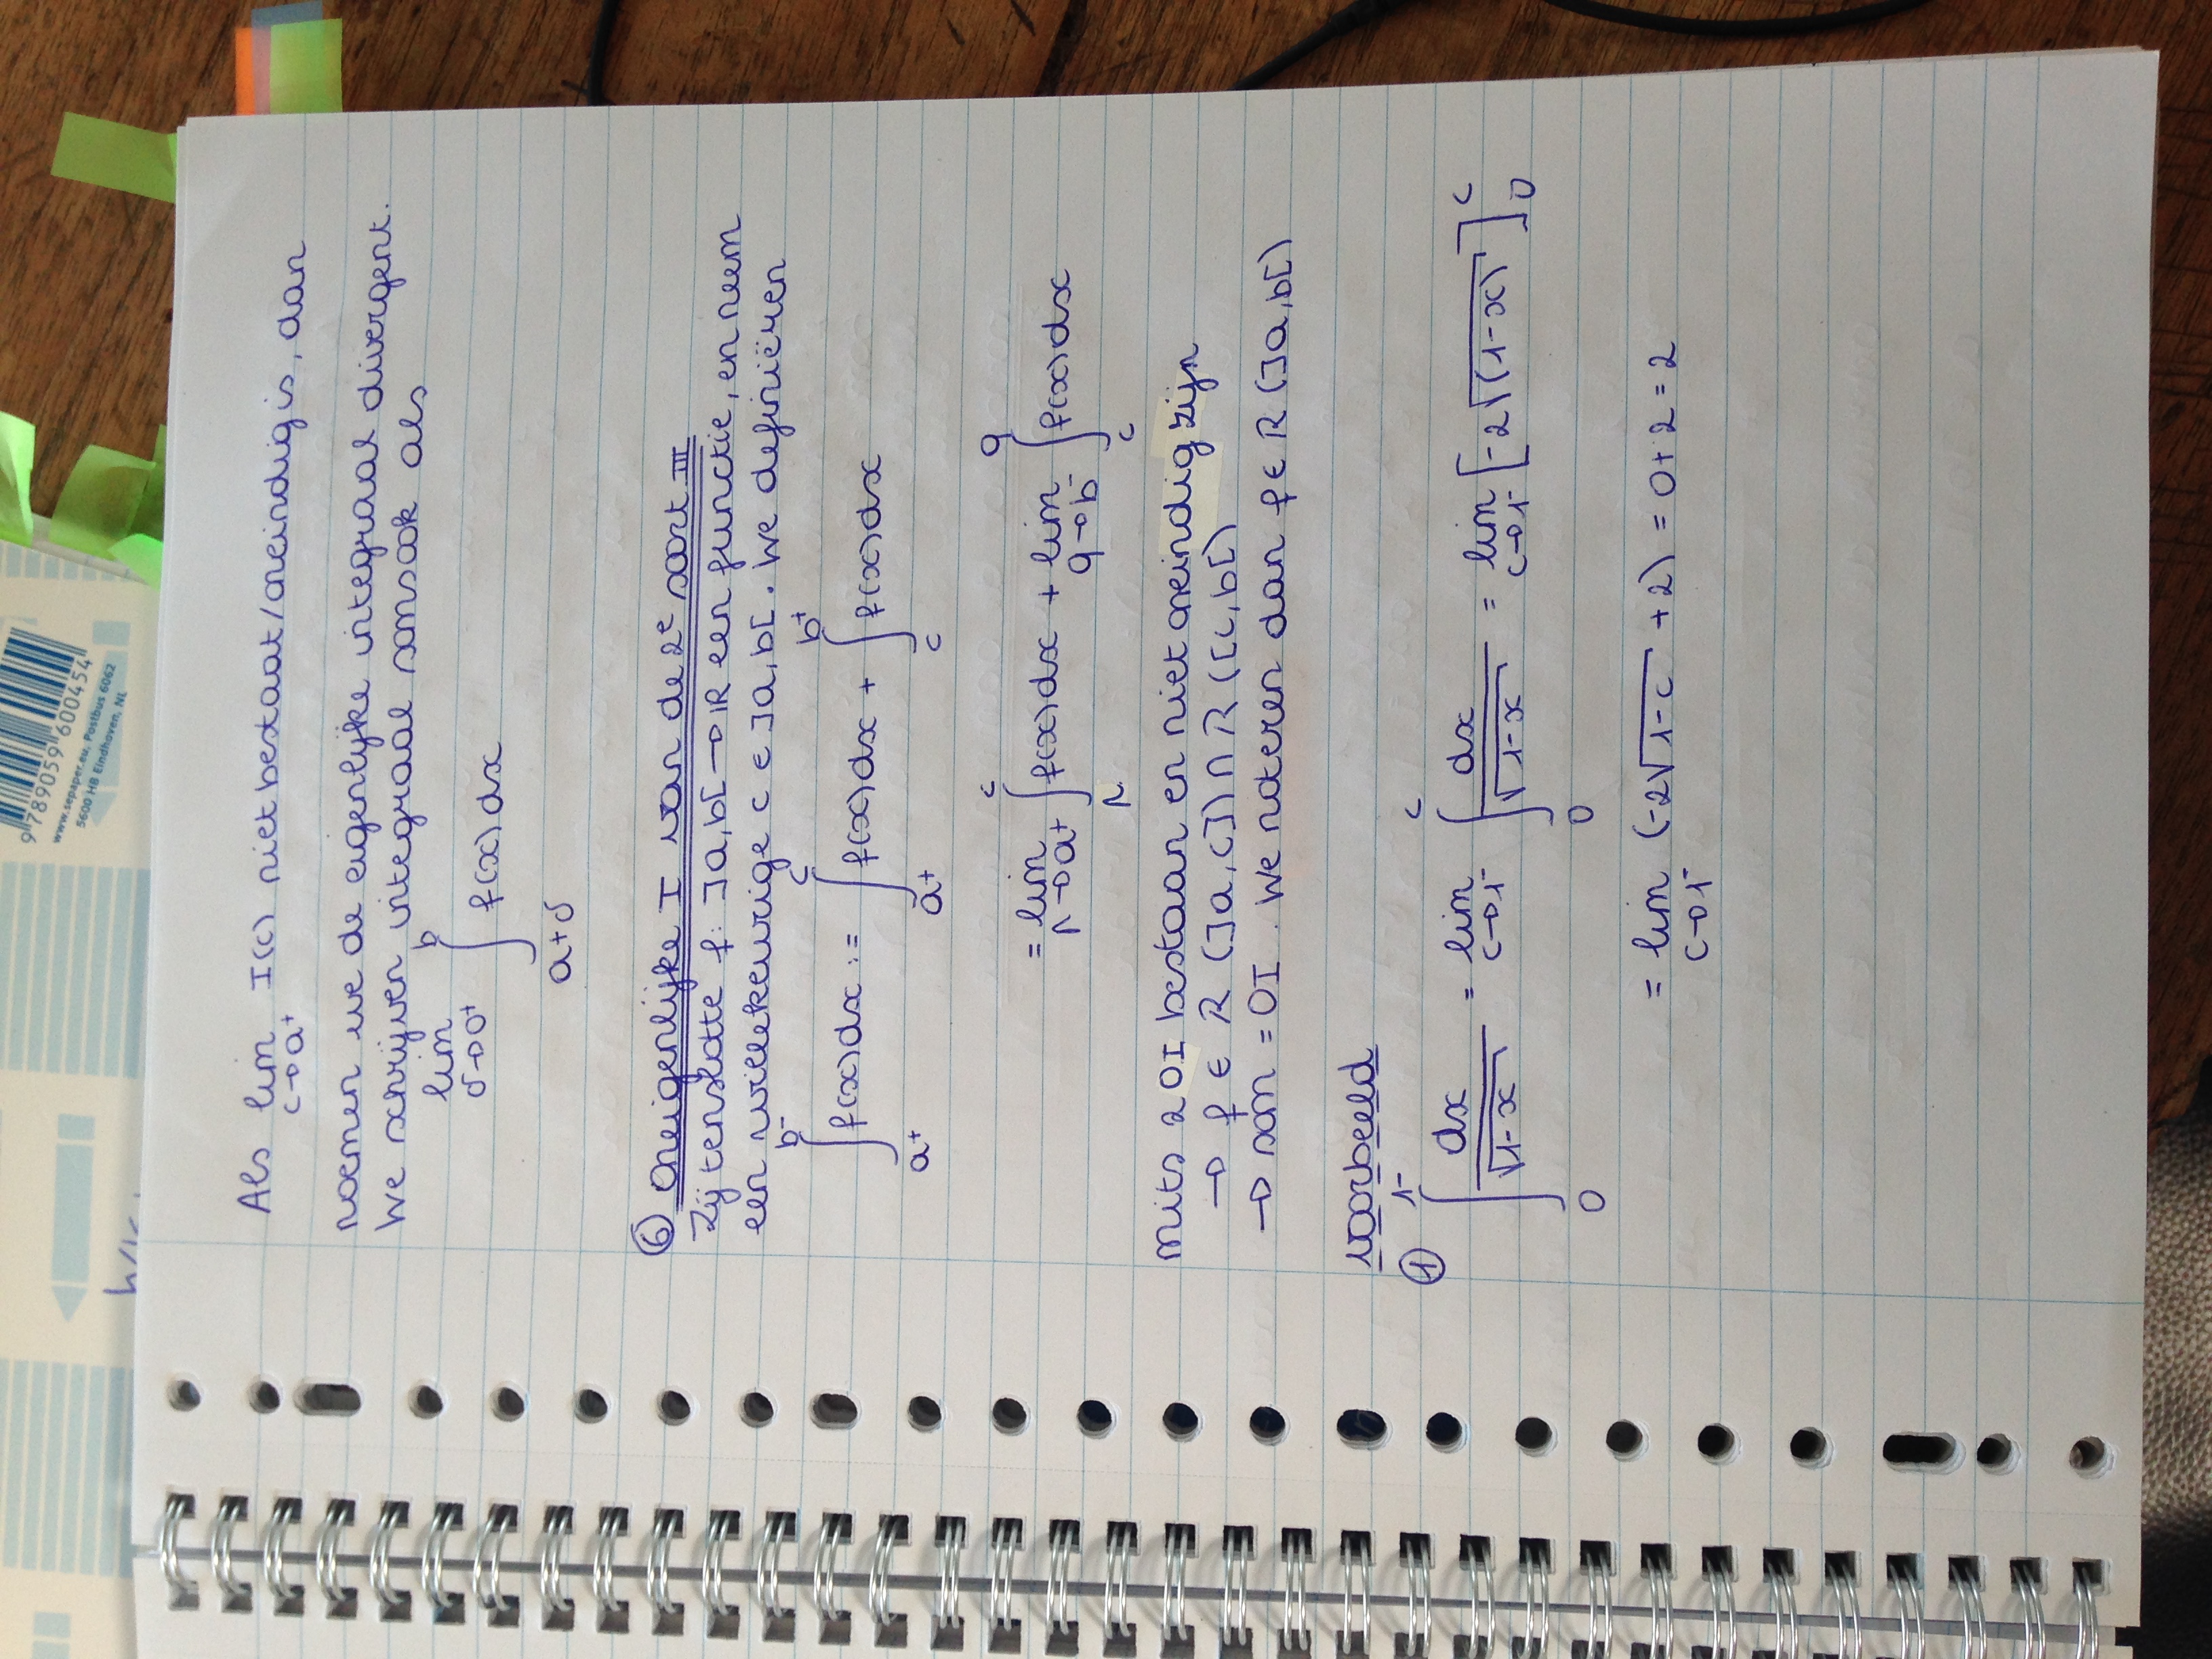 9 789059 600454
www.sepaper.eu, Postbus 6062
5600 HB Eindhoven, NL
Als lim I(c) niet bestaat/oneindig is, dan
c→a⁺
noemen we de eigenlijke integraal divergent.
We schrijven integraal soms ook als
lim ∫ b
δ→0⁺ f(x) dx
a+δ
⑥ Oneigenlijke I van de 2ᵉ soort III
Zij tenslotte f: ]a,b[ → ℝ een functie, en neem
een willekeurige c ∈ ]a,b[. We definiëren
b⁻ c b⁺
∫ f(x)dx := ∫ f(x)dx + ∫ f(x)dx
a⁺ a⁺ c
c q
= lim ∫ f(x)dx + lim ∫ f(x)dx
p→a⁺ p q→b⁻ c
mits 2 OI bestaan en niet oneindig zijn
→ f ∈ R (]a,c]) ∩ R ([c,b[)
→ som = OI. We noteren dan f ∈ R (]a,b[)
voorbeeld
① 1⁻ c
∫ dx/√(1-x) = lim ∫ dx/√(1-x) = lim [-2√(1-x)] c 0
0 c→1⁻ 0 c→1⁻
= lim (-2√(1-c) + 2) = 0+2 = 2
c→1⁻